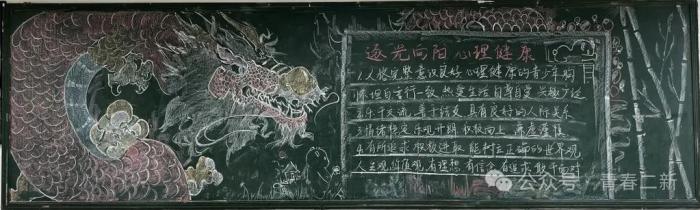 逐光向阳 心理健康
1.人格完整 意识良好 心理健康的青少年胸
怀坦白言行一致 热爱生活自尊自爱 兴趣广泛
2.乐于交流 善于结交 具有良好的人际关系
3.情绪稳定 乐观开朗 积极向上
4.有所追求 积极进取 能树立正确的世界观
人生观价值观 有理想 有信念 有追求 敢于面对
公众号·青春二新